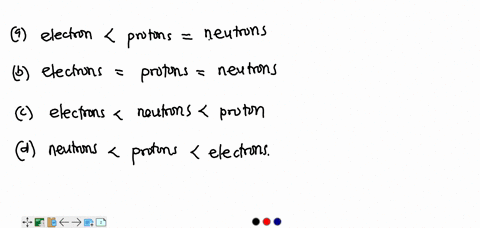 (a) electron < protons = neutrons
(b) electrons = protons = neutrons
(c) electrons < neutrons < proton
(d) neutrons < protons < electrons.